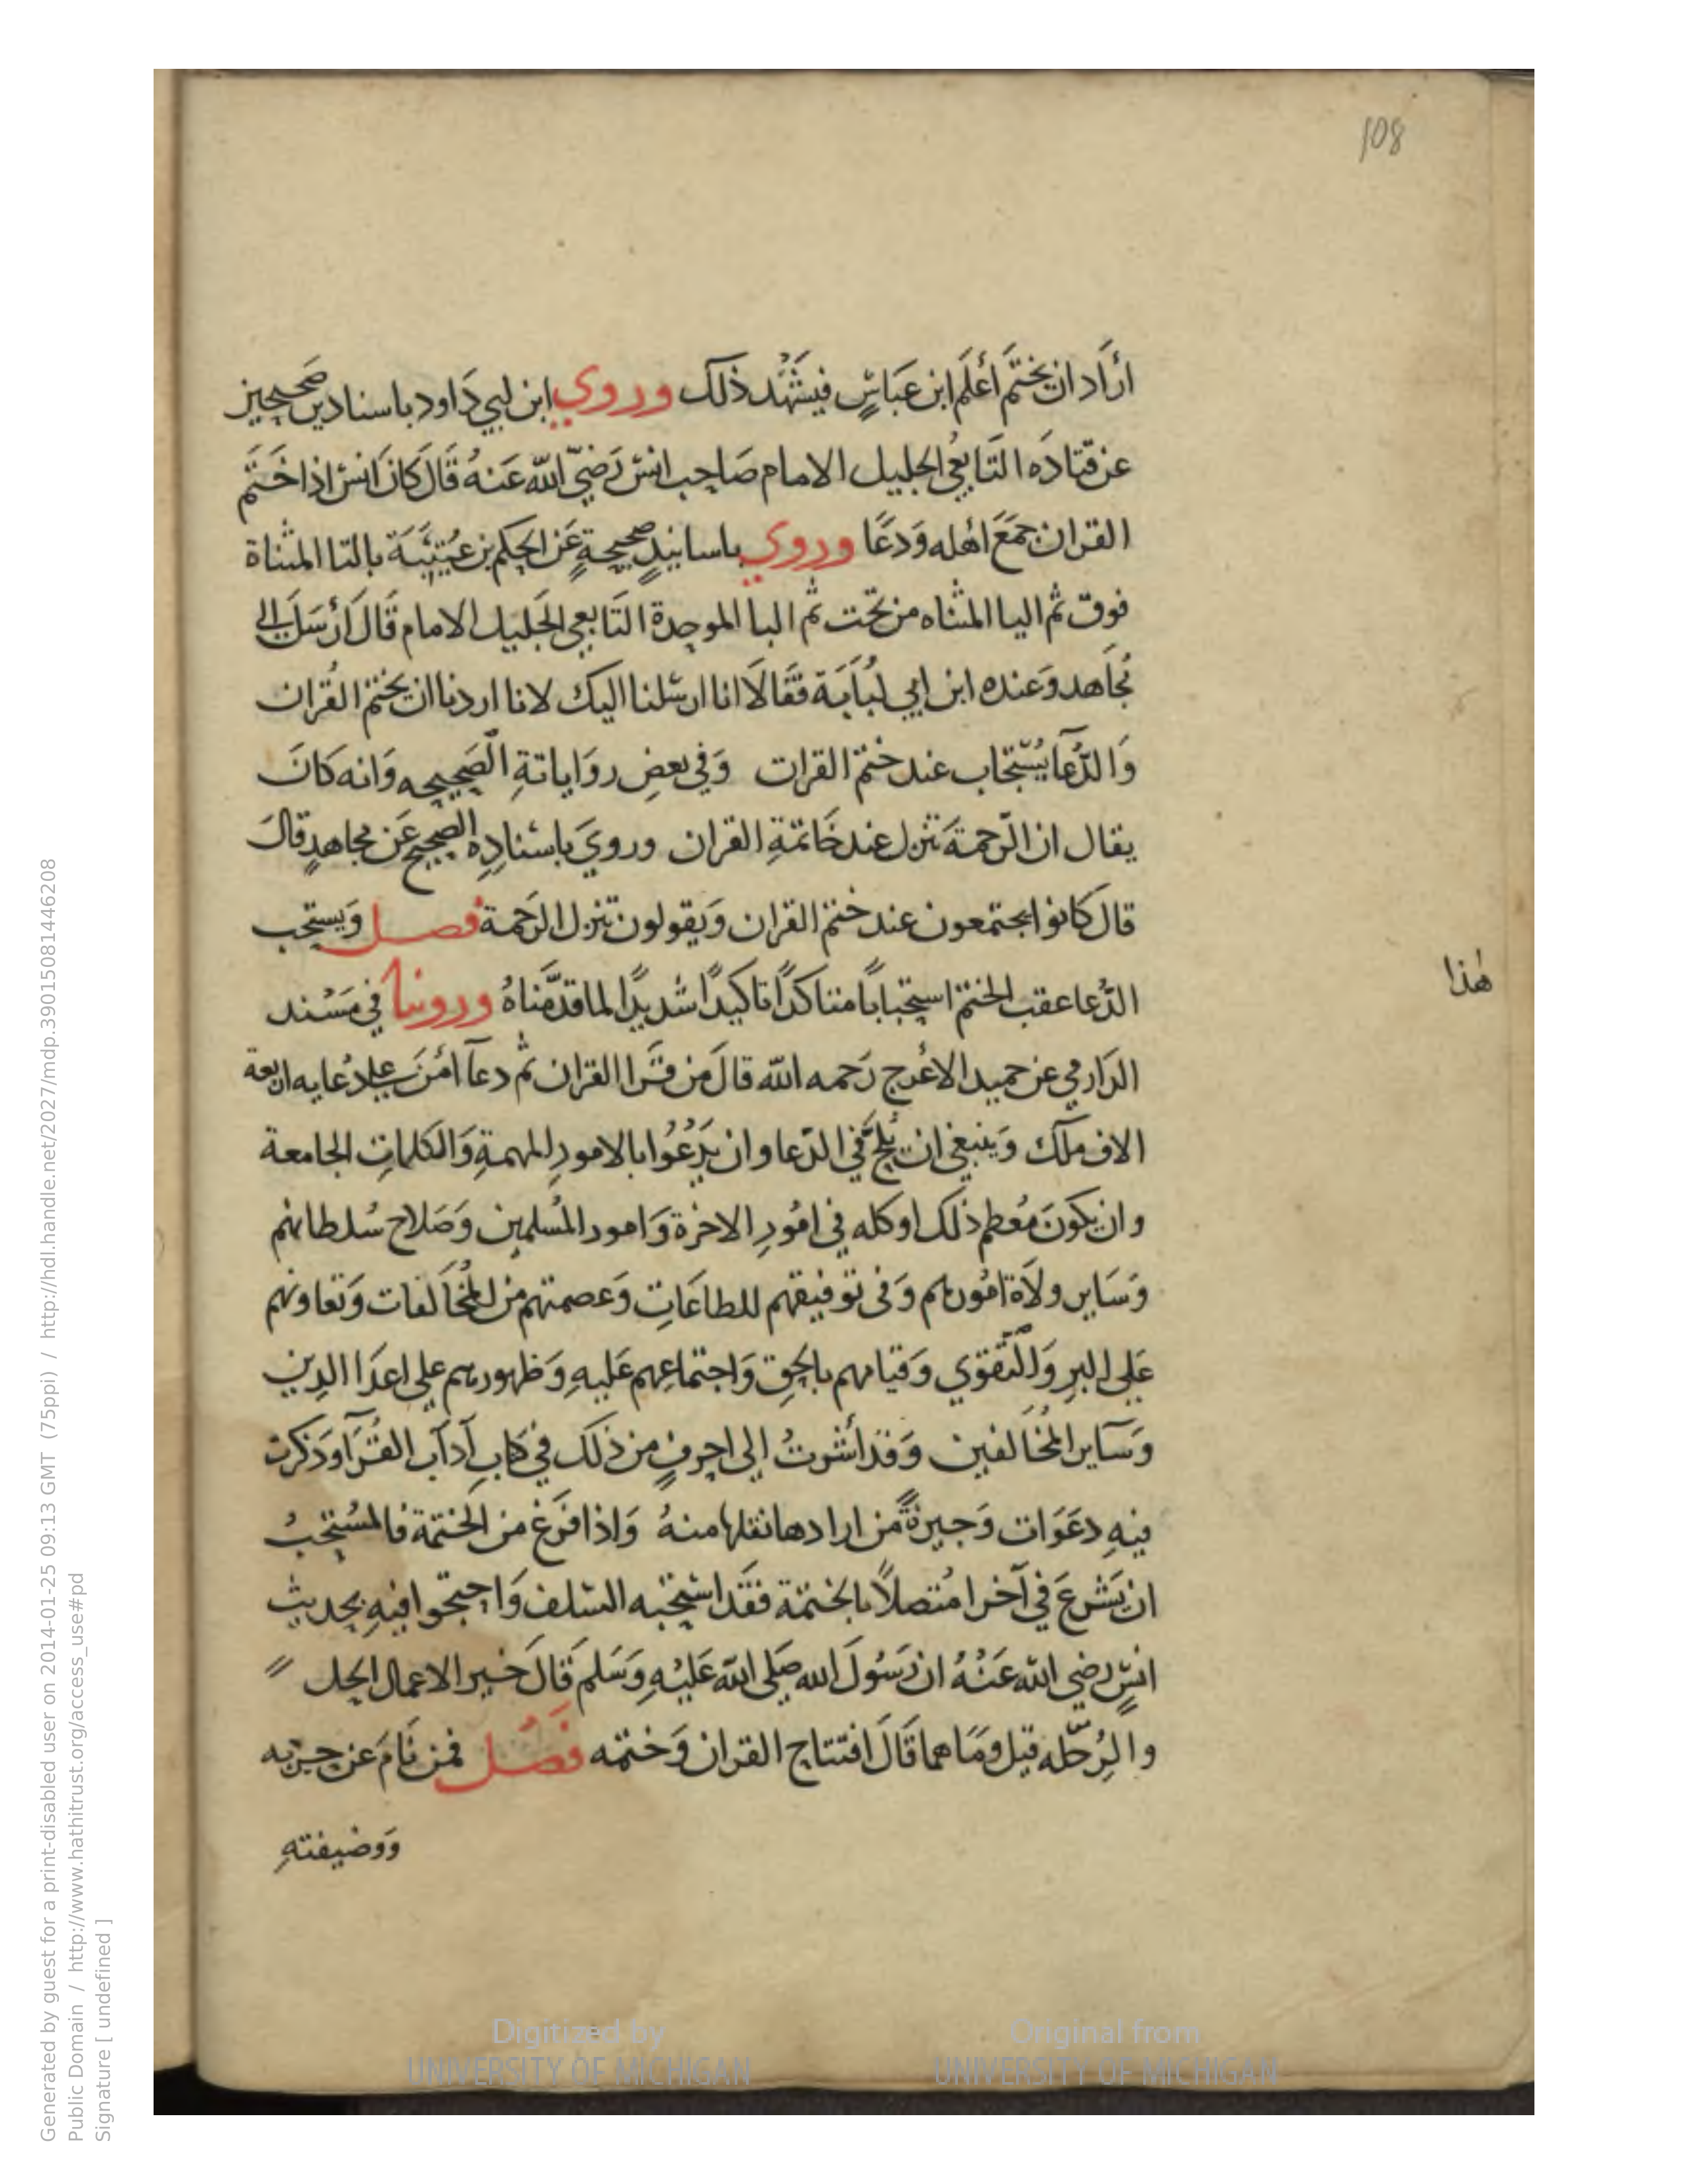 108
أراد ان يختم أعلم ابن عباسٍ فيشهد ذلك وروي ابن ابي داود باسنادين صحيحين
عن قتاده التابعي الجليل الامام صاحب انس رضي الله عنه قال كان انس اذا ختم
القران جمع اهله ودعا وروي باسانيد صحيحة عن الحكم بن عتيبة بالتا المثناة
فوق ثم اليا المثناه من تحت ثم البا الموحدة التابعي الجليل الامام قال أرسل الي
مجاهد وعنده ابن ابي لبابة فقالا انا ارسلنا اليك لانا اردنا ان يختم القران
والدعا يستجاب عند ختم القران وفي بعض رواياتة الصحيحه وانه كان
يقال ان الرحمة تنزل عند خاتمة القران وروي باسناده الصحيح عن مجاهد قال
قال كانوا يجتمعون عند ختم القران ويقولون تنزل الرحمة فصل ويستحب
الدعا عقب الختم استحبابا متاكدا تاكيدا شديدا لما قدمناه وروينا في مسند
هذا
الدارمي عن حميد الاعرج رحمه الله قال من قرا القران ثم دعا امن علي دعايه اربعة
الاف ملك وينبغي ان يلح في الدعا وان يدعوا بالامور المهمة والكلمات الجامعة
وان يكون معظم ذلك او كله في امور الاخرة وامور المسلمين وصلاح سلطانهم
وساير ولاة امورهم وفى توفيقهم للطاعات وعصمتهم من المخالفات وتعاونهم
على البر والتقوي وقيامهم بالحق واجتماعهم عليه وظهورهم على اعدا الدين
وساير المخالفين وقد أشرت الى احرف من ذلك في كتاب آداب القرآ وذكرت
فيه دعوات وجيزة من ارادها نقلها منه واذا فرغ من الختمة فالمستحب
ان يشرع في آخرا متصلا بالختمة فقد استحبه السلف واحتجوا فيه بحديث
انس رضي الله عنه ان رسول الله صلى الله عليه وسلم قال خير الاعمال الحل
والرحله قيل وما هما قال افتتاح القران وختمه فصل فمن نام عن حزبه
ووضيفته
Generated by guest for a print-disabled user on 2014-01-25 09:13 GMT (75ppi) / http://hdl.handle.net/2027/mdp.39015081446208
Public Domain / http://www.hathitrust.org/access_use#pd
Signature [ undefined ]
Digitized by
UNIVERSITY OF MICHIGAN
Original from
UNIVERSITY OF MICHIGAN